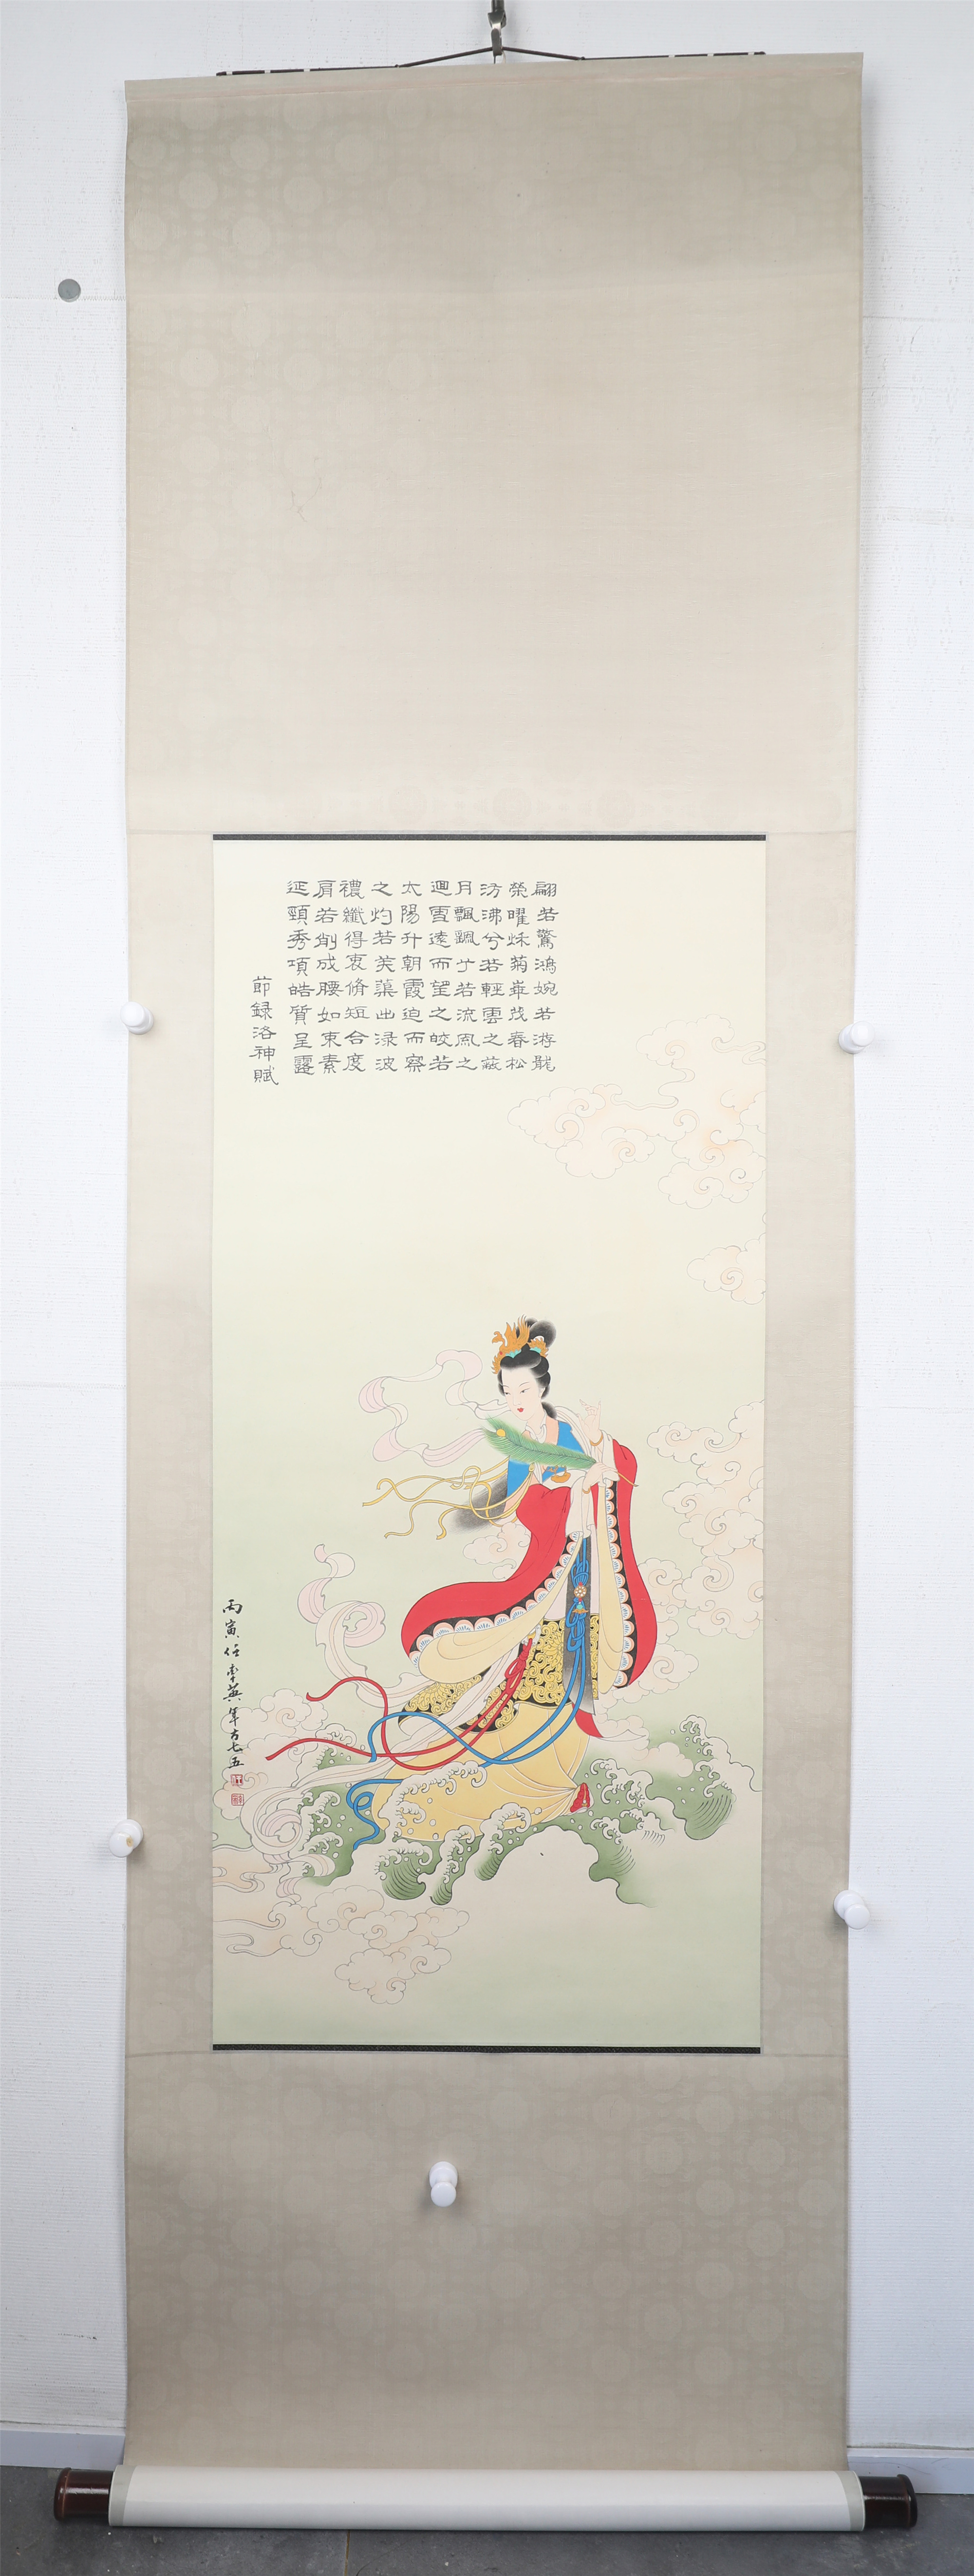 翩若驚鴻婉若游龍
榮曜秌菊華茂春松
汸沸兮若輕雲之蔽
月飄颻兮若流風之
迴雪遠而望之皎若
太陽升朝霞迫而察
之灼若芙蕖出淥波
襛纖得衷脩短合度
肩若削成腰如束素
延頸秀項皓質呈露
節録洛神賦
丙寅任率英年方七五